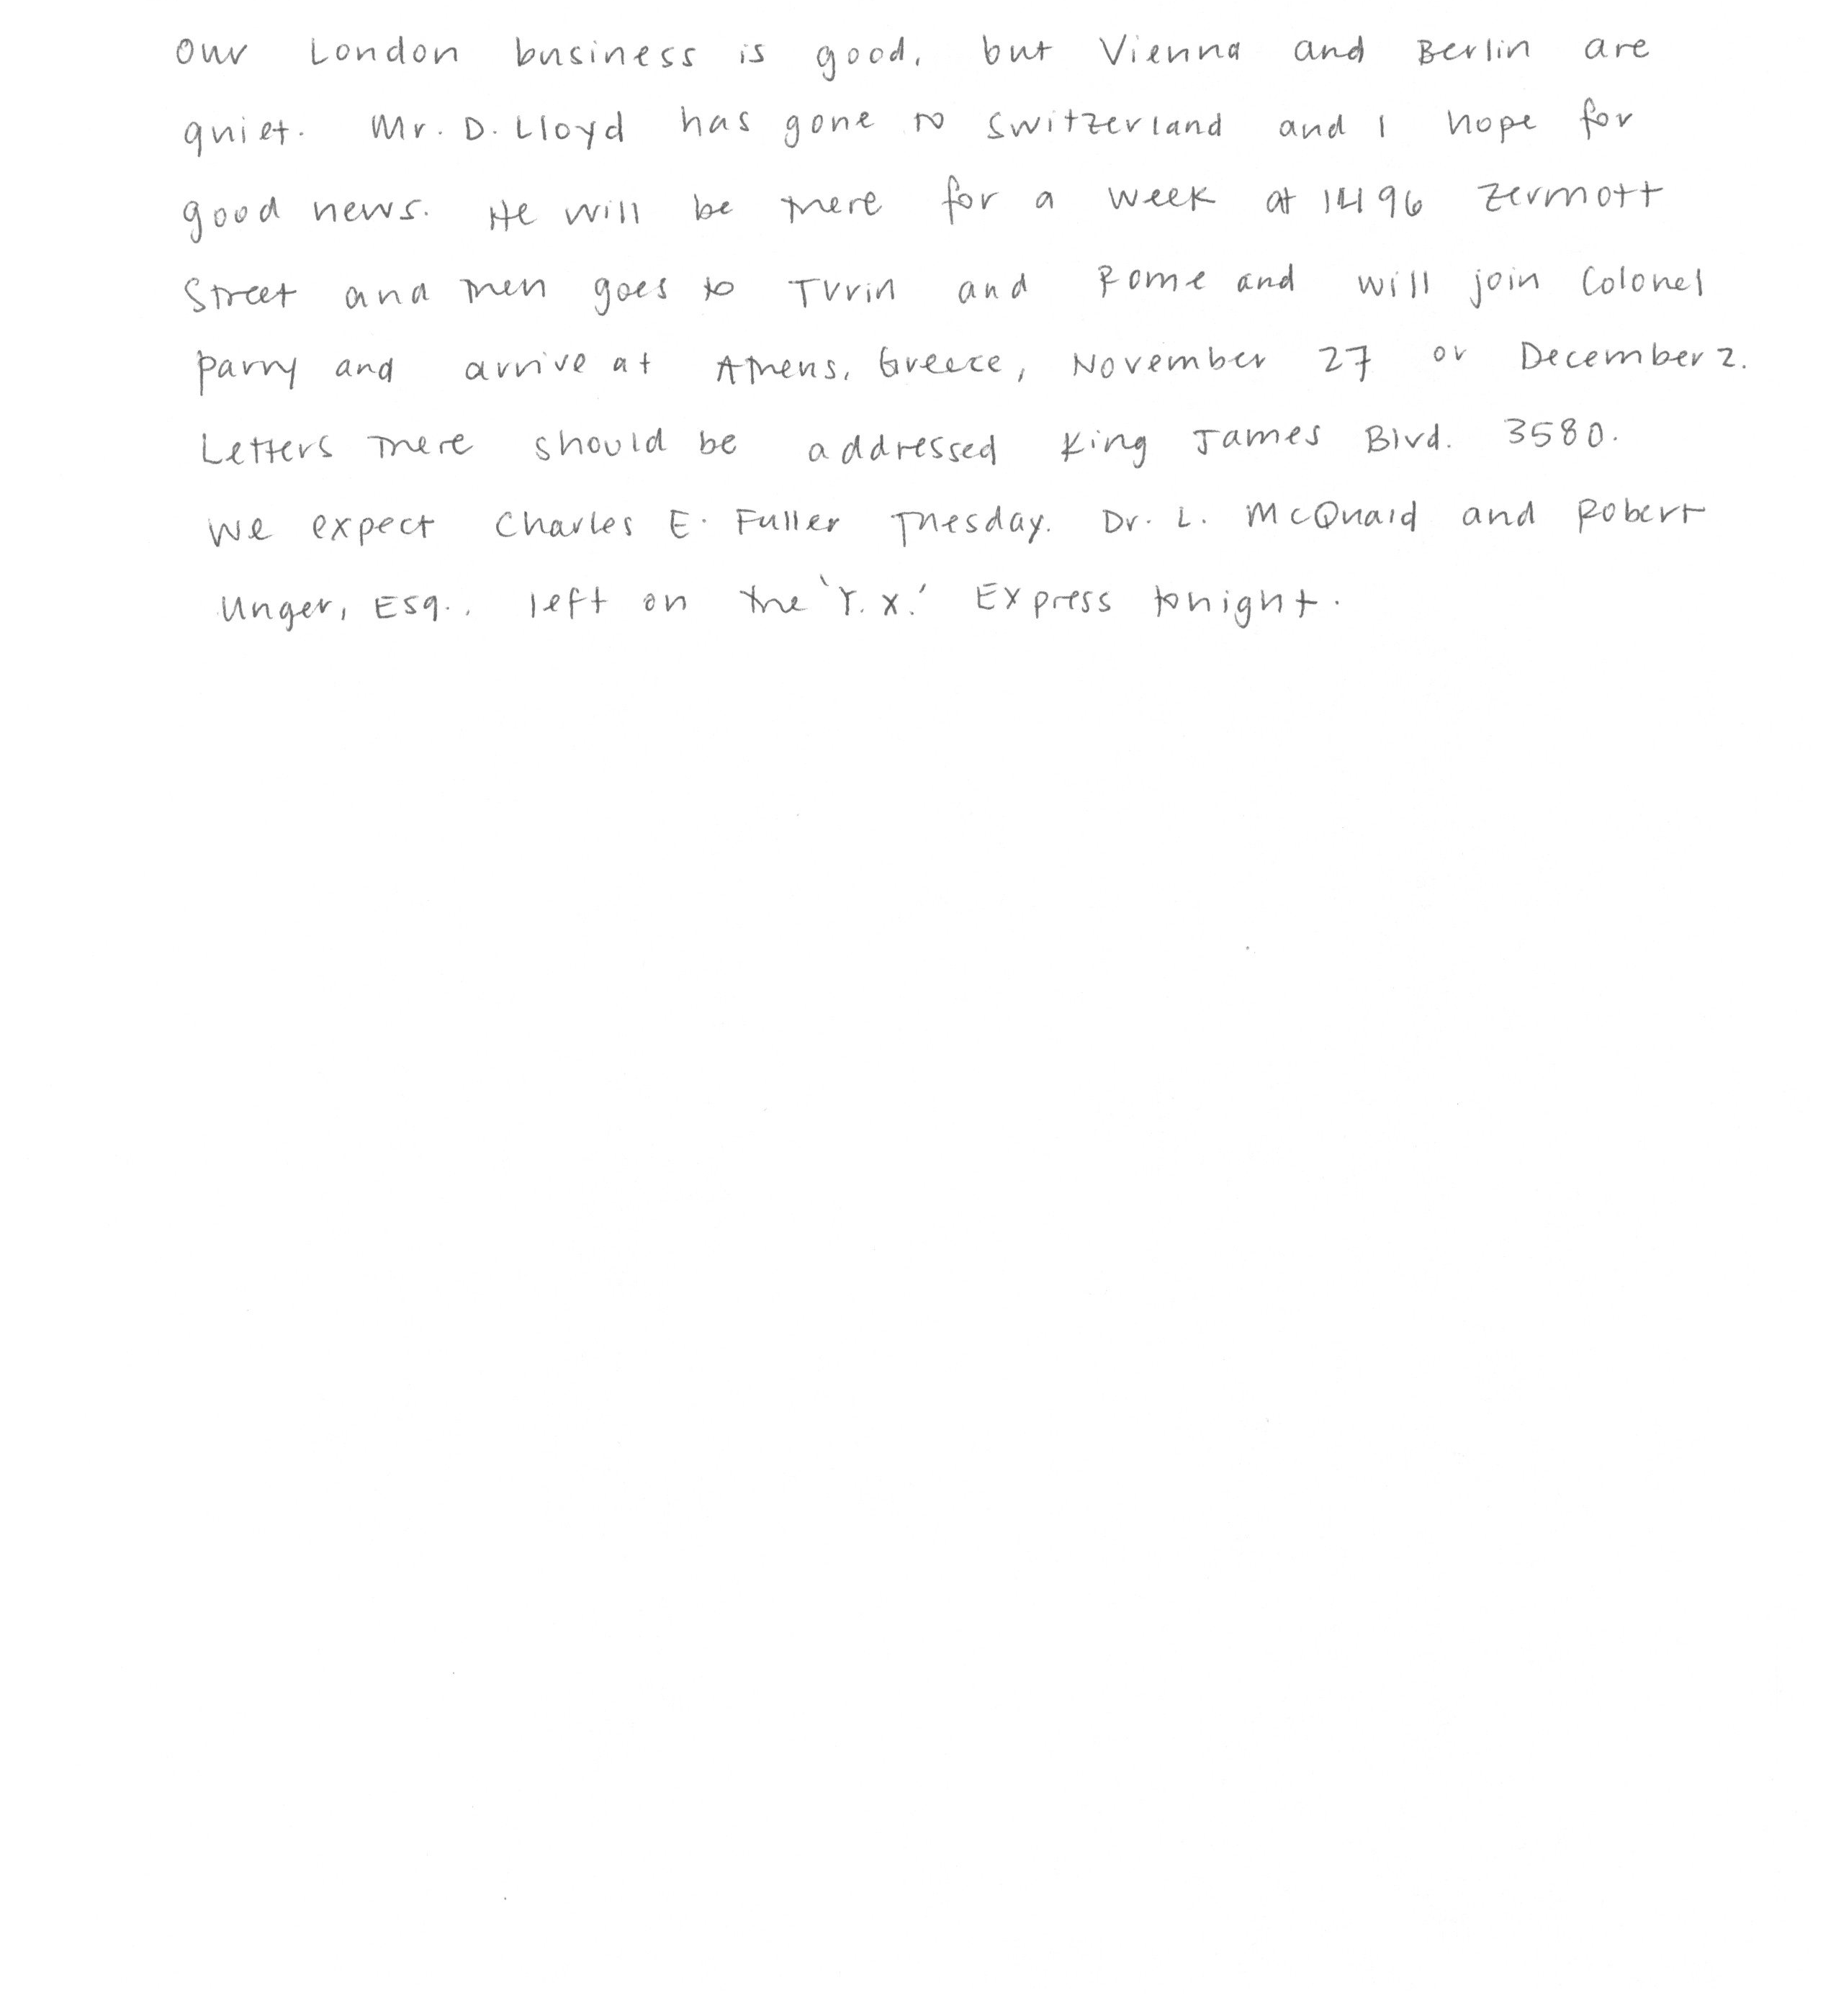 Our London business is good, but Vienna and Berlin are
quiet. Mr. D. Lloyd has gone to Switzerland and I hope for
good news. He will be there for a week at 1496 Zermott
Street and then goes to Turin and Rome and will join Colonel
Parry and arrive at Athens, Greece, November 27 or December 2.
Letters there should be addressed King James Blvd. 3580.
We expect Charles E. Fuller Tuesday. Dr. L. McQuaid and Robert
Unger, Esq., left on the 'Y.X.' Express tonight.